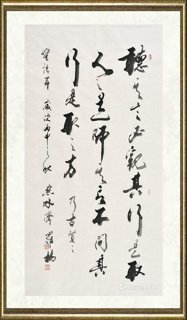 聽其言必觀其行是取
人之道師其言不問其
行是取之方 乃古賢之
歲次丙申之秋